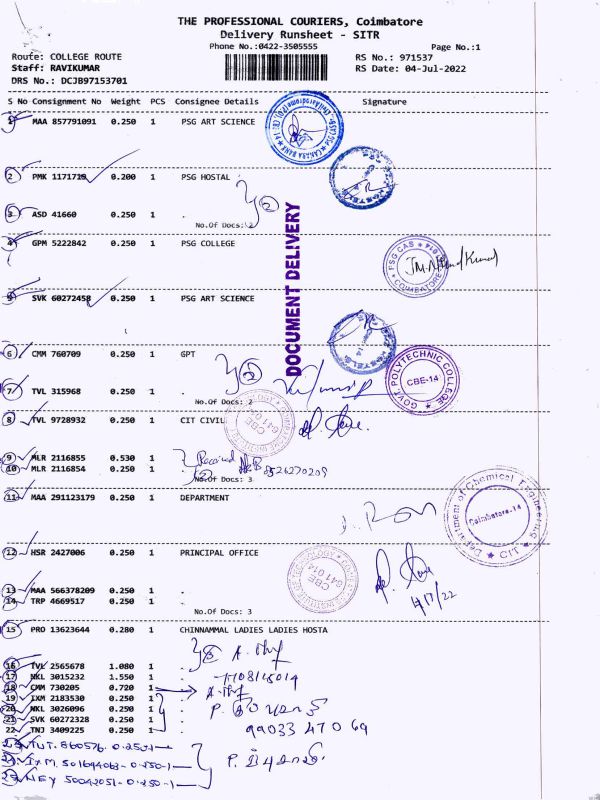 THE PROFESSIONAL COURIERS, Coimbatore
Delivery Runsheet - SITR
Phone No.:0422-3505555 Page No.:1
Route: COLLEGE ROUTE RS No.: 971537
Staff: RAVIKUMAR RS Date: 04-Jul-2022
DRS No.: DCJB97153701
S No Consignment No Weight PCS Consignee Details Signature
1 MAA 857791091 0.250 1 PSG ART SCIENCE
2 PMK 1171718 0.200 1 PSG HOSTAL
3 ASD 41660 0.250 1 .
No.Of Docs: 2
DOCUMENT DELIVERY
4 GPM 5222842 0.250 1 PSG COLLEGE
PSG CAS
COIMBATORE
5 SVK 60272458 0.250 1 PSG ART SCIENCE
6 CMM 760709 0.250 1 GPT
7 TVL 315968 0.250 1 .
No.Of Docs: 2
GOVT POLYTECHNIC COLLEGE
CBE-14
8 TVL 9728932 0.250 1 CIT CIVIL
CBE
641 014
9 MLR 2116855 0.530 1 . Received
10 MLR 2116854 0.250 1 .
No.Of Docs: 3
11 MAA 291123179 0.250 1 DEPARTMENT
Department of Chemical Engineering
Coimbatore-14
CIT
12 HSR 2427006 0.250 1 PRINCIPAL OFFICE
CBE
641 014
13 MAA 566378209 0.250 1 .
14 TRP 4669517 0.250 1 .
No.Of Docs: 3
4/7/22
15 PRO 13623644 0.280 1 CHINNAMMAL LADIES LADIES HOSTA
16 TVL 2565678 1.080 1 .
17 NKL 3015232 1.550 1 .
18 CMM 730205 0.720 1 .
19 IXM 2183530 0.250 1 .
20 NKL 3026096 0.250 1 .
21 SVK 60272328 0.250 1 .
22 TNJ 3409225 0.250 1 . 99033 47069
23 TUT. 560576. 0.250-1
24 IXM. 501694063-0.250-1
25 NEY 50042051-0.250-1